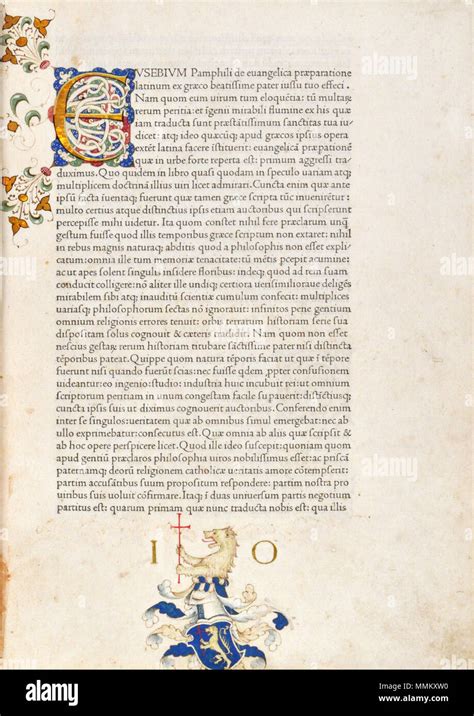 EUSEBIUM Pamphili de euangelica præparatione
latinum ex græco beatissime pater iussu tuo effeci.
Nam quom eum uirum tum eloquētia: tū multaꝝ
rerum peritia: et īgenii mirabili flumine ex his quæ
iam traducta sunt præstātissimum sanctitas tua iu-
dicet: atqꝫ ideo quæcūqꝫ apud græcos ipsius opera
extēt latina facere īstituerit: euangelicā præpationē
quæ in urbe forte reperta est: primum aggressi tra-
duximus. Quo quidem in libro quasi quodam in speculo uariam atqꝫ
multiplicem doctrinā illius uiri licet admirari. Cuncta enim quæ ante
ipsū facta īuentaqꝫ fuerunt quæ tamen græce scripta tūc inuenirētur:
multo certius atqꝫ distinctius ipsis etiam auctoribus qui scripserunt
percepisse mihi uidetur. Ita quom constet nihil fere præclarum unqꝫ
gestum fuisse quod illis temporibus græce scriptum non extaret: nihil
in rebus magnis naturaqꝫ abditis quod a philosophis non esset expli-
catum: omnia ille tum memoriæ tenacitate: tū mētis pcepit acumine:
ac ut apes solent singulis insidere floribus: indeqꝫ quod ad rem suam
conducit colligere: nō aliter ille undiqꝫ certiora uerisimilioraue deligēs
mirabilem sibi atqꝫ inauditū scientiæ cumulum confecit: multiplices
uariasqꝫ philosophorum sectas nō ignorauit: infinitos pene gentium
omnium religionis errores tenuit: orbis terrarum historiam serie sua
dispositam solus cognouit & cæteris tradidit. Nam quom non esset
nescius gestaꝝ rerum historiam titubare sāctissime pater nisi distincta
tēporibus pateat. Quippe quom natura tēporis faciat ut quæ ī tēpore
fuerunt nisi quando fuerūt scias: nec fuisse qdem ppter confusionem
uideantur: eo ingenio: studio: industria huic incubuit rei: ut omnium
scriptorum peritiam in unum congestam facile supauerit: distīctiusqꝫ
cuncta ipsis suis ut diximus cognouerit auctoribus. Conferendo enim
inter se singulos: ueritatem quæ ab omnibus simul emergebat: nec ab
ullo exprimebatur: consecutus est. Quæ omnia ab aliis quæ scripsit &
ab hoc opere perspicere licet. Quod ille ideo suscepit: quoniam quom
apud gentiū præclaros philosophia uiros nobilissimus esset: ac priscā
paternamqꝫ deorū religionem catholicæ ueritatis amore cōtempserit:
partim accusātibus suum propositum respondere: partim nostra pro
uiribus suis uoluit cōfirmare. Itaqꝫ ī duas uniuersum partis negotium
partitus est: quarum primam quæ nunc traducta nobis est: qua illis
I O
alamy
Image ID: MMKXW0
www.alamy.com